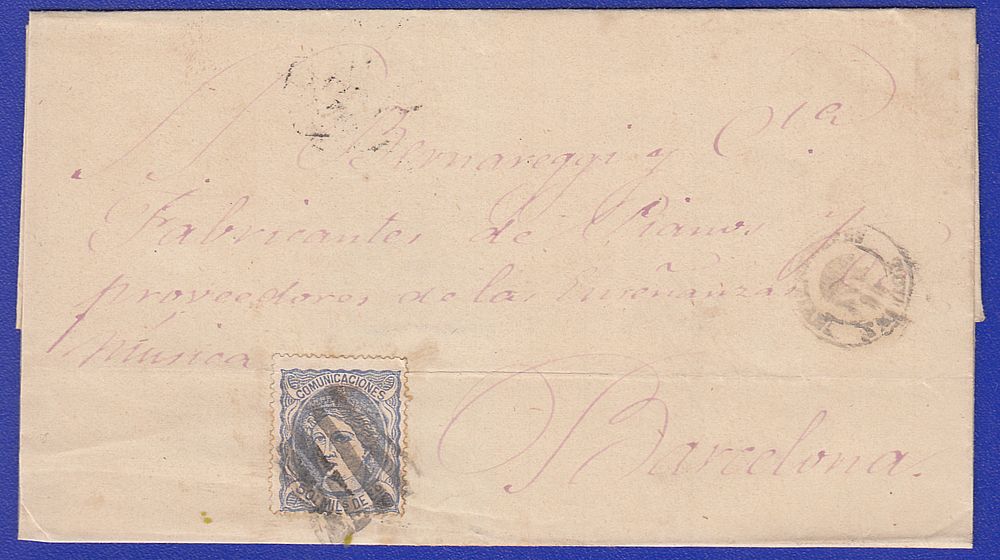 Bernareggi y Cia
Fabricantes de Pianos y
proveedores de las Enseñanzas
Musica
Barcelona.
COMUNICACIONES
50 MILS DE